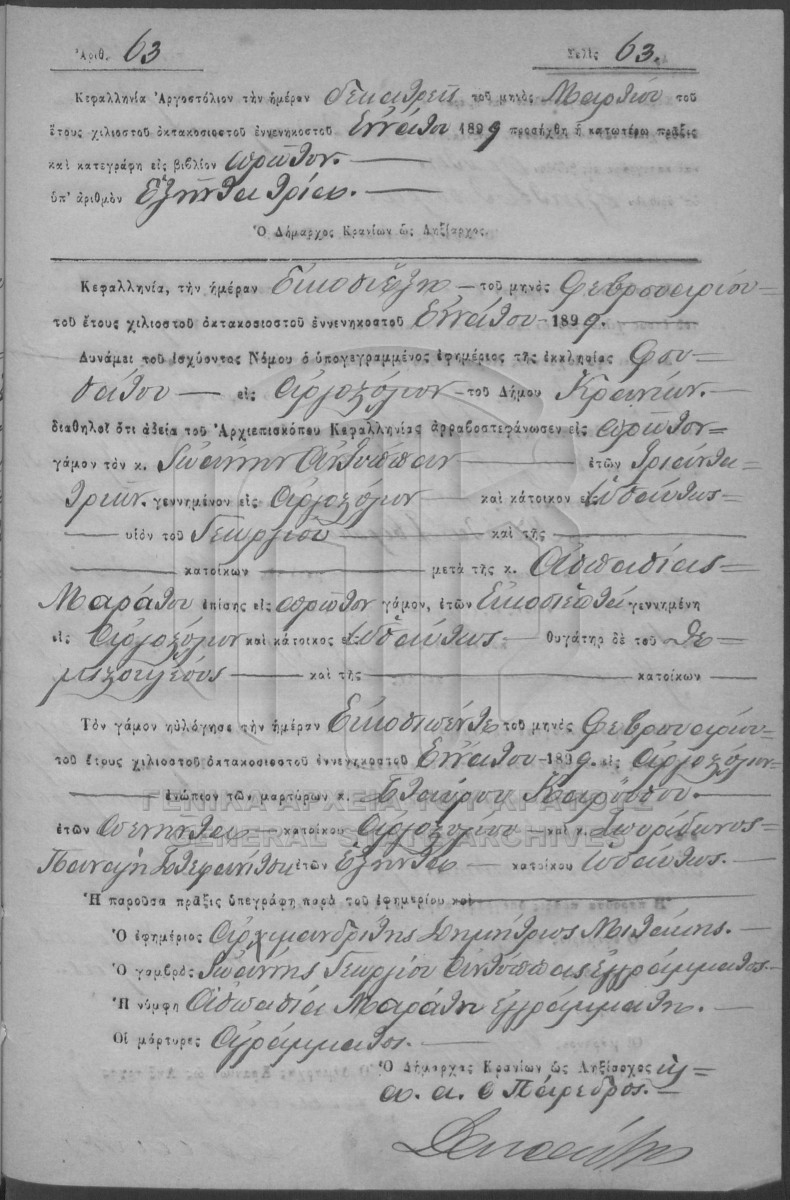 Ἀριθ. 63 Σελὶς 63.
Κεφαλληνία Ἀργοστόλιον τὴν ἡμέραν δεκατρεῖς τοῦ μηνὸς Μαρτίου τοῦ
ἔτους χιλιοστοῦ ὀκτακοσιοστοῦ ἐννενηκοστοῦ Ἐννάτου 1899 προσήχθη ἡ κατωτέρω πρᾶξις
καὶ κατεγράφη εἰς βιβλίον πρῶτον.
ὑπ' ἀριθμὸν Ἑξῆντα τρία.
Ὁ Δήμαρχος Κρανίων ὡς Ληξίαρχος.
Κεφαλληνία, τὴν ἡμέραν Εἰκοσιέξη τοῦ μηνὸς Φεβρουαρίου
τοῦ ἔτους χιλιοστοῦ ὀκτακοσιοστοῦ ἐννενηκοστοῦ Ἐννάτου 1899.
Δυνάμει τοῦ ἰσχύοντος Νόμου ὁ ὑπογεγραμμένος ἐφημέριος τῆς ἐκκλησίας
εἰς Ἀργοστόλιον τοῦ Δήμου Κρανίων.
διαδηλοῖ ὅτι ἀδεία τοῦ Ἀρχιεπισκόπου Κεφαλληνίας ἀρραβοστεφάνωσεν εἰς πρῶτον
γάμον τὸν κ. Ἰωάννην Ἀντύππαν ἐτῶν τριάντα
τριῶν. γεννημένον εἰς Ἀργοστόλιον καὶ κάτοικον εἰς ὡσαύτως
υἱὸν τοῦ Γεωργίου καὶ τῆς
κατοίκων μετὰ τῆς κ. Ἀσπασίας
Μαράτου ἐπίσης εἰς πρῶτον γάμον, ἐτῶν Εἰκοσιεπτά γεννημένη
εἰς Ἀργοστόλιον καὶ κάτοικος εἰς ὡσαύτως θυγάτηρ δὲ τοῦ Θε-
μιστοκλέους καὶ τῆς κατοίκων
Τὸν γάμον ηὐλόγησε τὴν ἡμέραν Εἰκοσιπέντε τοῦ μηνὸς Φεβρουαρίου
τοῦ ἔτους χιλιοστοῦ ὀκτακοσιοστοῦ ἐννενηκοστοῦ Ἐννάτου 1899. εἰς Ἀργοστόλιον
ἐνώπιον τῶν μαρτύρων κ. Σταύρου Καρούσου.
ἐτῶν πενῆντα κατοίκου Ἀργοστολίου καὶ κ. Σπυρίδωνος
Παναγῆ Στεφανίτση ἐτῶν Ἑξῆντα κατοίκου ὡσαύτως.
Ἡ παροῦσα πρᾶξις ὑπεγράφη παρὰ τοῦ ἐφημερίου καὶ
Ὁ ἐφημέριος Ἀρχιμανδρίτης Δημήτριος Μιτάκης.
Ὁ γαμβρὸς Ἰωάννης Γεωργίου Ἀντύππας ἐγγράμματος.
Ἡ νύμφη Ἀσπασία Μαράτη ἐγγράμματη.
Οἱ μάρτυρες ἀγράμματοι.
Ὁ Δήμαρχος Κρανίων ὡς Ληξίαρχος
κ. α. ὁ Πάρεδρος.
ΓΕΝΙΚΑ ΑΡΧΕΙΑ ΤΟΥ ΚΡΑΤΟΥΣ
GENERAL STATE ARCHIVES